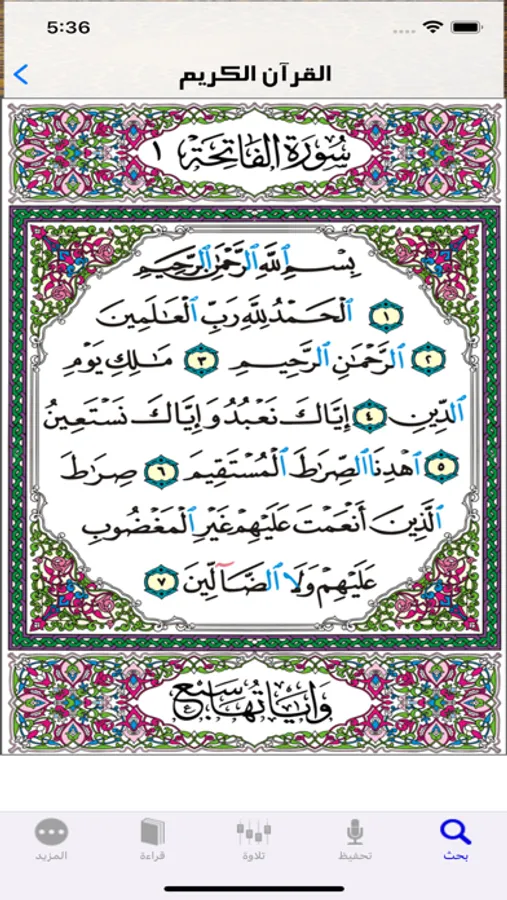 5:36
القرآن الكريم
سُورَةُ الفَاتِحَة ١
بِسْمِ ٱللَّهِ ٱلرَّحْمَٰنِ ٱلرَّحِيمِ
١ ٱلْحَمْدُ لِلَّهِ رَبِّ ٱلْعَٰلَمِينَ
٢ ٱلرَّحْمَٰنِ ٱلرَّحِيمِ ٣ مَٰلِكِ يَوْمِ
ٱلدِّينِ ٤ إِيَّاكَ نَعْبُدُ وَإِيَّاكَ نَسْتَعِينُ
٥ ٱهْدِنَا ٱلصِّرَٰطَ ٱلْمُسْتَقِيمَ ٦ صِرَٰطَ
ٱلَّذِينَ أَنْعَمْتَ عَلَيْهِمْ غَيْرِ ٱلْمَغْضُوبِ
عَلَيْهِمْ وَلَا ٱلضَّآلِّينَ ٧
وَآيَاتُهَا سَبْع
بحث
تحفيظ
تلاوة
قراءة
المزيد